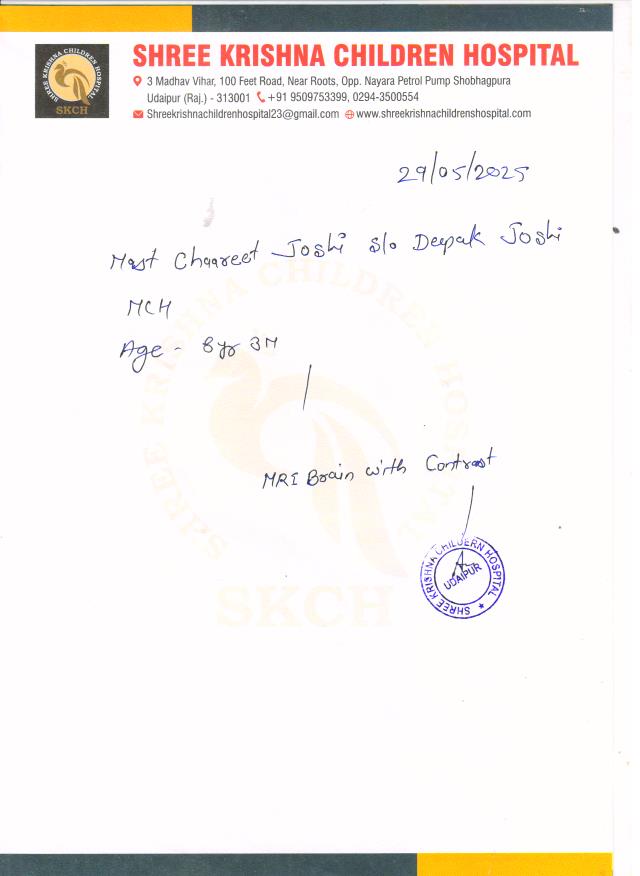 SHREE KRISHNA CHILDREN HOSPITAL
SKCH
SHREE KRISHNA CHILDREN HOSPITAL
3 Madhav Vihar, 100 Feet Road, Near Roots, Opp. Nayara Petrol Pump Shobhagpura
Udaipur (Raj.) - 313001 +91 9509753399, 0294-3500554
Shreekrishnachildrenhospital23@gmail.com www.shreekrishnachildrenshospital.com
29/05/2025
Mast Chaareet Joshi S/o Deepak Joshi
MCH
Age - 8yr 3M
MRI Brain with Contrast
SHREE KRISHNA CHILDERN HOSPITAL
UDAIPUR
SHREE KRISHNA CHILDREN HOSPITAL
SKCH